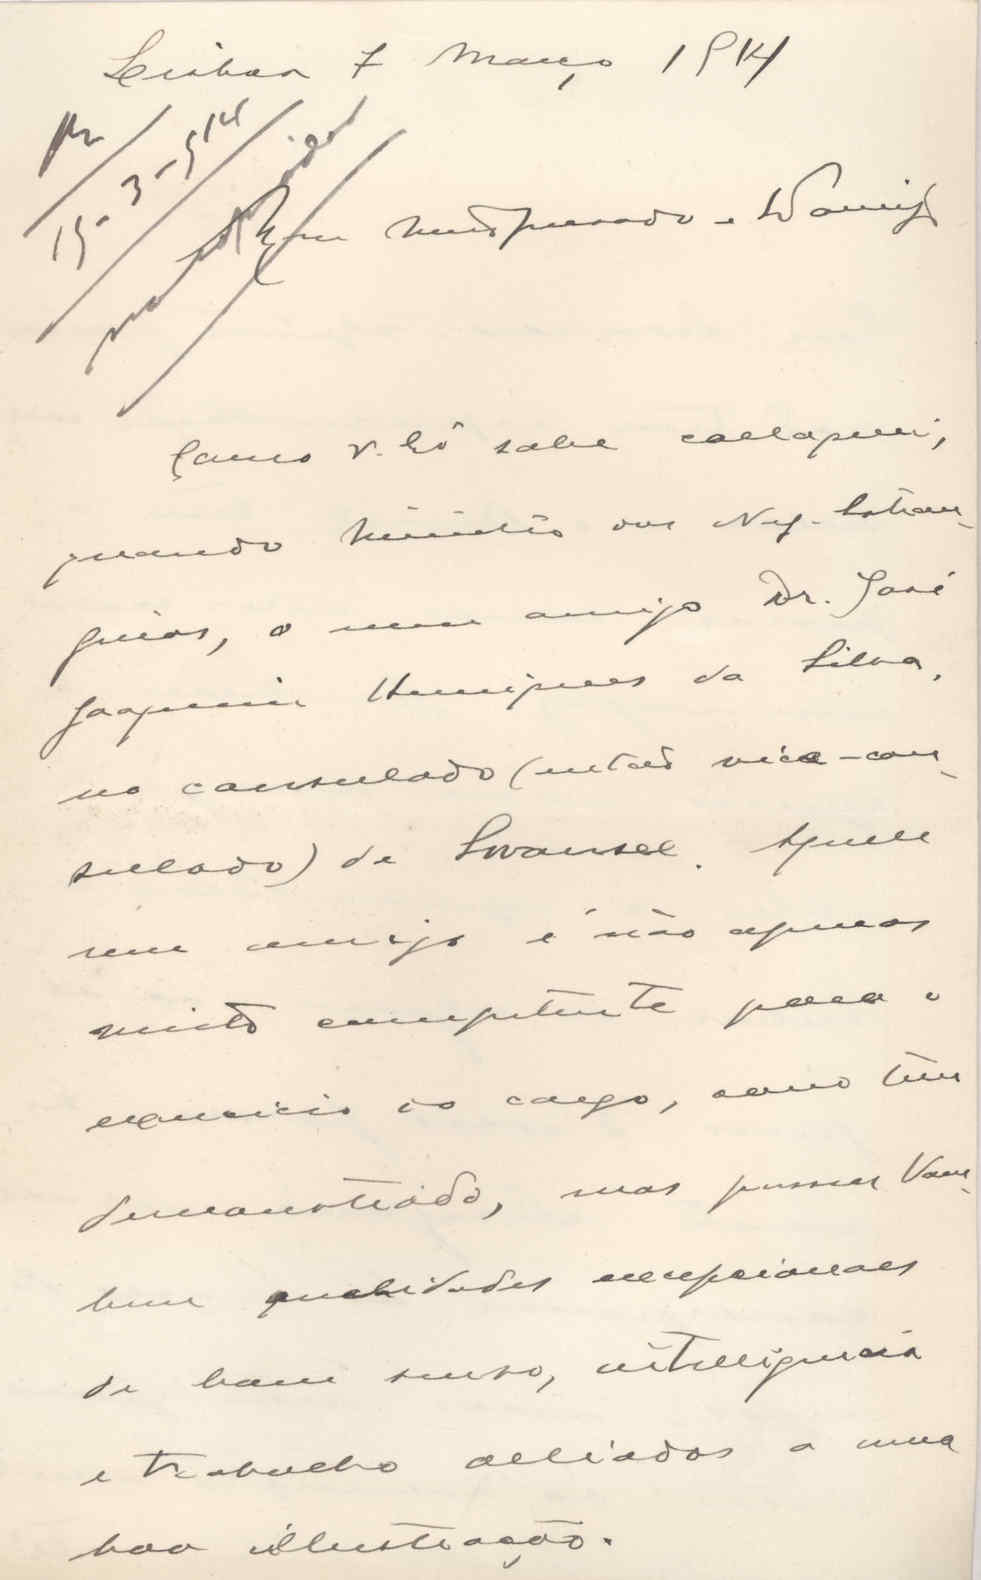 Lisboa 7 Março 1914
R
15-3-914
Meu muito presado e bom amigo
Como V. Exª sabe colloquei,
quando Ministro dos Neg. Estran-
geiros, o meu amigo Dr. José
Joaquim Henriques da Silva,
no consulado (então vice-con-
sulado) de Swansee. Aquelle
meu amigo é não apenas
muito competente para o
exercicio do cargo, como têm
demonstrado, mas possue tam-
bem qualidades excepcionaes
de bom senso, intelligencia
e trabalho alliados a uma
boa illustração.